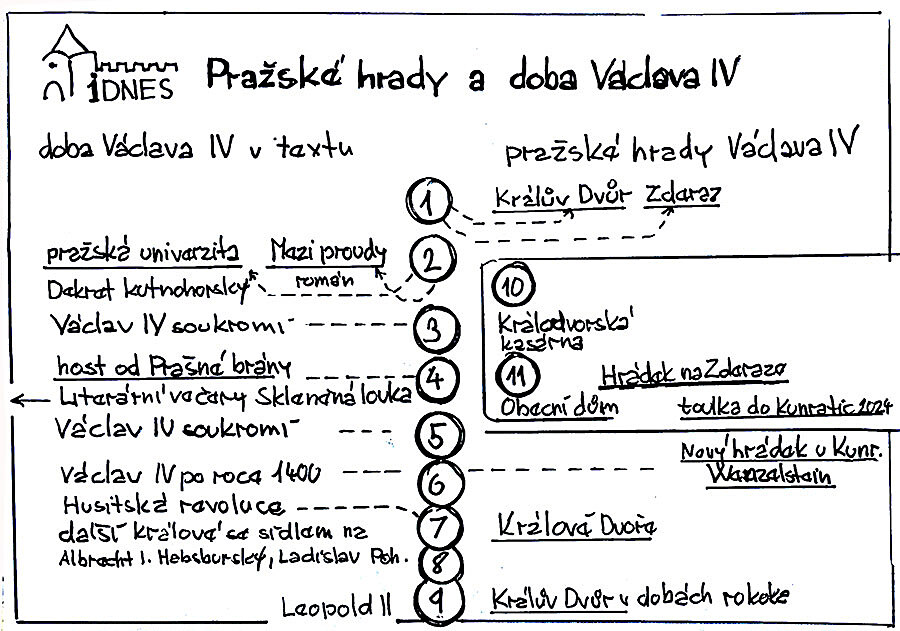 iDNES
Pražské hrady a doba Václava IV
doba Václava IV v textu
pražské hrady Václava IV
1
Králův Dvůr Zderaz
pražská univerzita Mezi proudy
2
Dekret kutnohorský román
10
Václav IV soukromí
3
Králodvorská
kasárna
host od Prašné brány
4
11
Hrádek na Zderaze
Literární večery Skleněná louka
Obecní dům toulka do Kunratic 2024
Václav IV soukromí
5
Nový hrádek u Kunr.
Wenzelstein
Václav IV po roce 1400
6
Husitská revoluce
7
další králové se sídlem na
Králové Dvoře
Albrecht I. Habsburský, Ladislav Poh.
8
9
Leopold II
Králův Dvůr v dobách rokoka